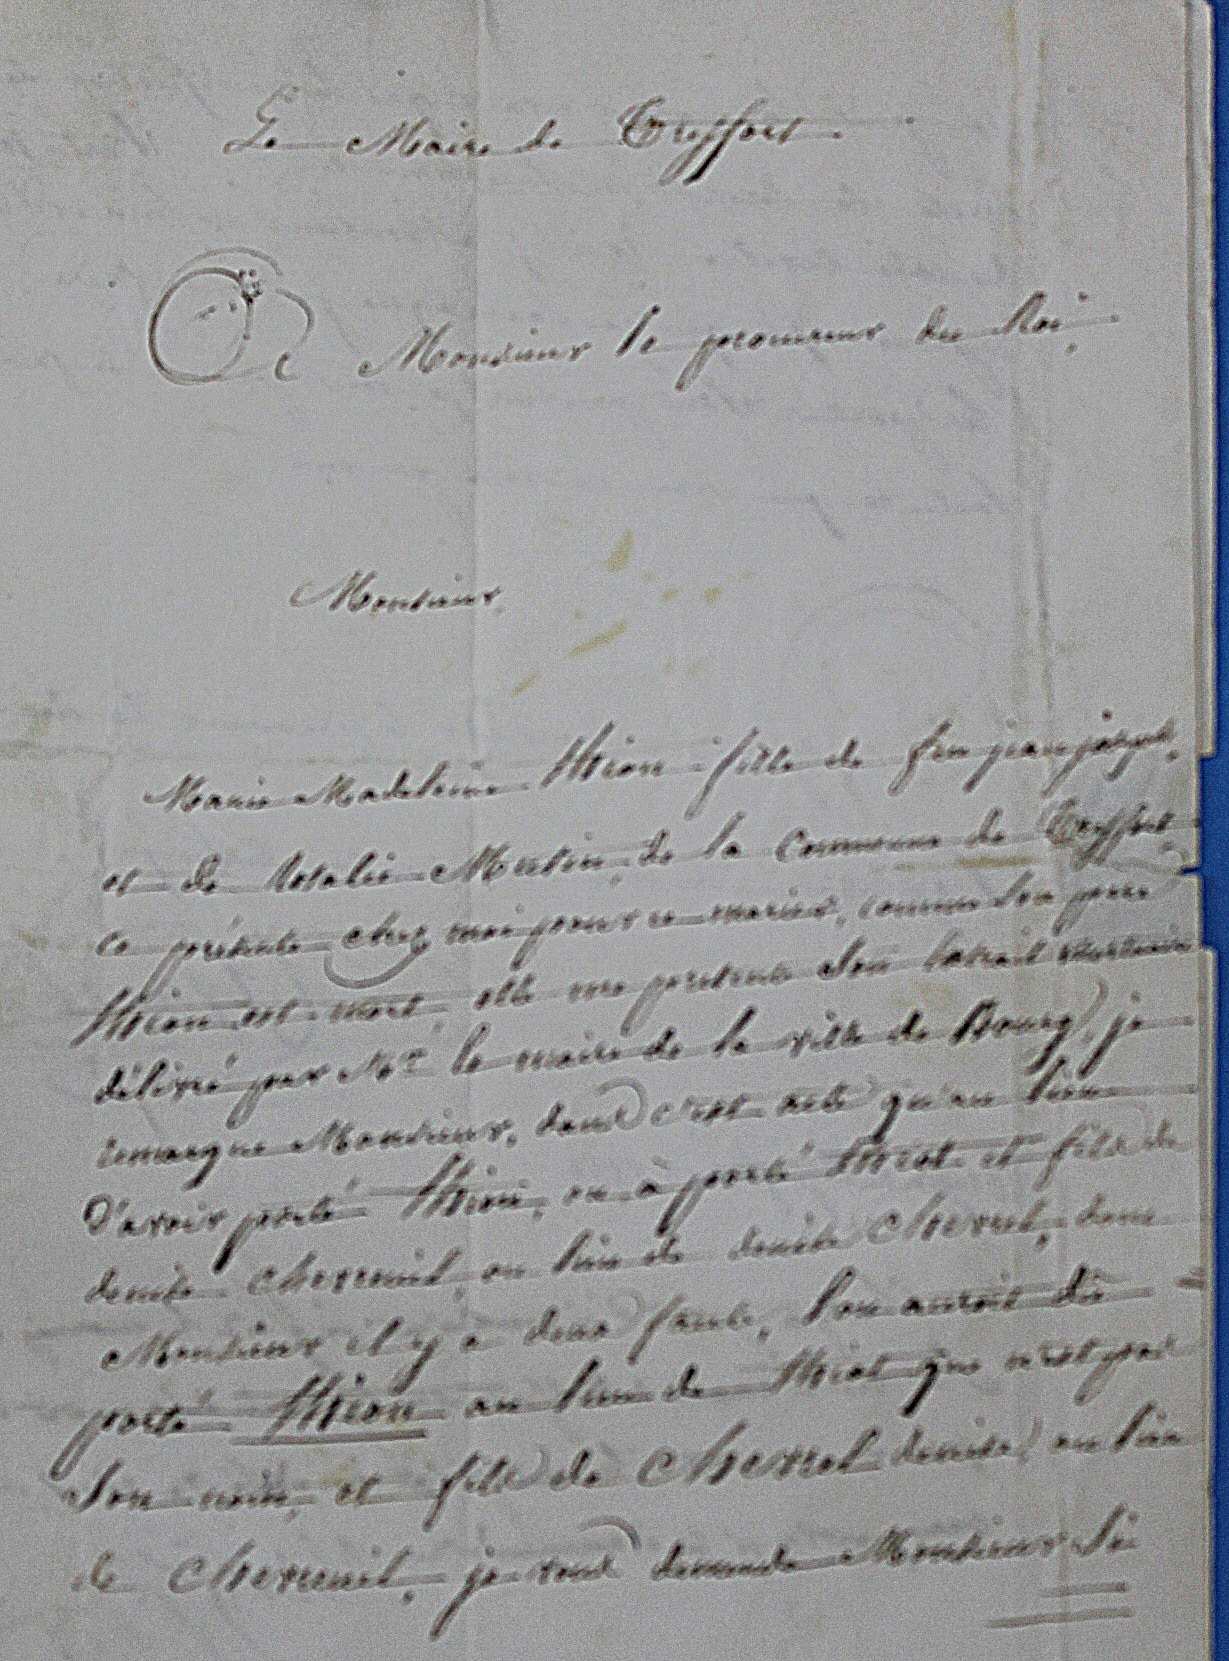 Le Maire de Treffort.
A Monsieur le procureur du Roi,
Monsieur
Marie Madeleine Thion fille de feu jean joseph,
et de Rosalie Mertin, de la Commune de Treffort,
ce présente chez moi pour ce marier, comme son pere
Thion est mort elle me presente son Extrait mortuaire
délivré par Mr. le maire de la ville de Bourg, je
remarque Monsieur, dans c'est acte qu'au lieu
d'avoir porté Thion, on à porté Thiot et fils de
denise Chevreuil, au lieu de denise Chevrel, donc
Monsieur il y a deux faute, l'on auroit dû
porté Thion au lieu de Thiot que n'est pas
son nom, et fils de Chevrel denise, au lieu
de Chevreuil, je vous demande Monsieur Si